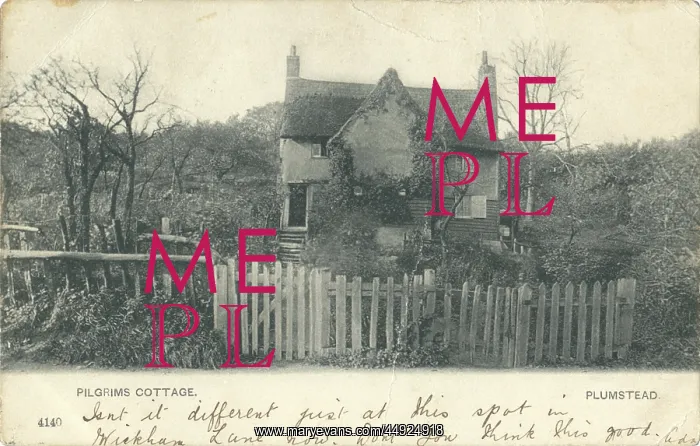 ME
PL
ME
PL
PILGRIMS COTTAGE.
PLUMSTEAD.
4140
Isnt it different just at this spot in
Wickham Lane now. Dont you think this good.
www.maryevans.com/44924918